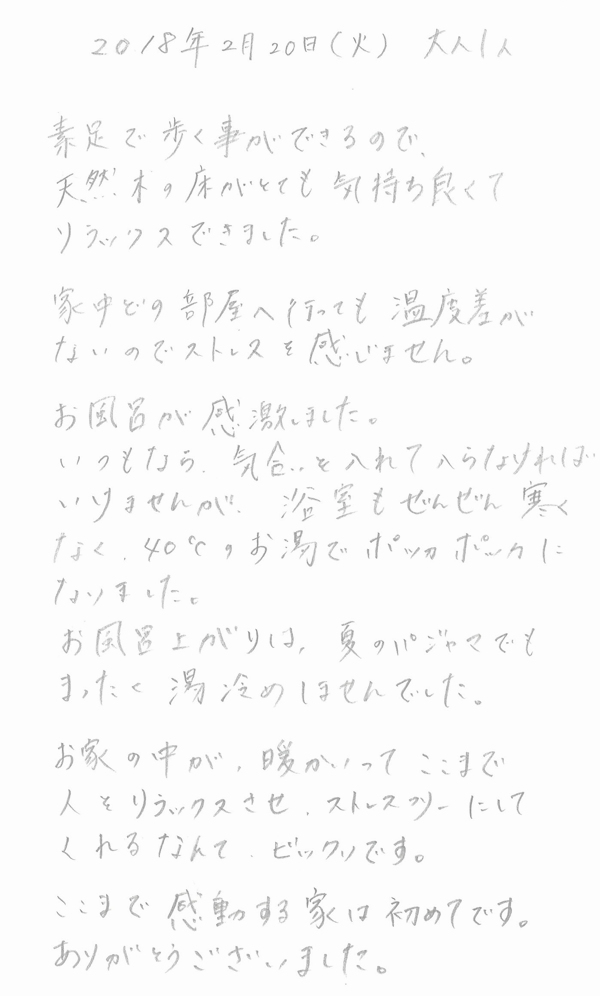 2018年2月20日(火) 大人1人
素足で歩く事ができるので、
天然木の床がとても気持ち良くて
リラックスできました。
家中どの部屋へ行っても温度差が
ないのでストレスを感じません。
お風呂が感激しました。
いつもなら、気合いを入れて入らなければ
いけませんが、浴室もぜんぜん寒く
なく、40℃のお湯でポッカポッカに
なりました。
お風呂上がりは、夏のパジャマでも
まったく湯冷めしませんでした。
お家の中が、暖かいってここまで
人をリラックスさせ、ストレスフリーにして
くれるなんて、ビックリです。
ここまで感動する家は初めてです。
ありがとうございました。